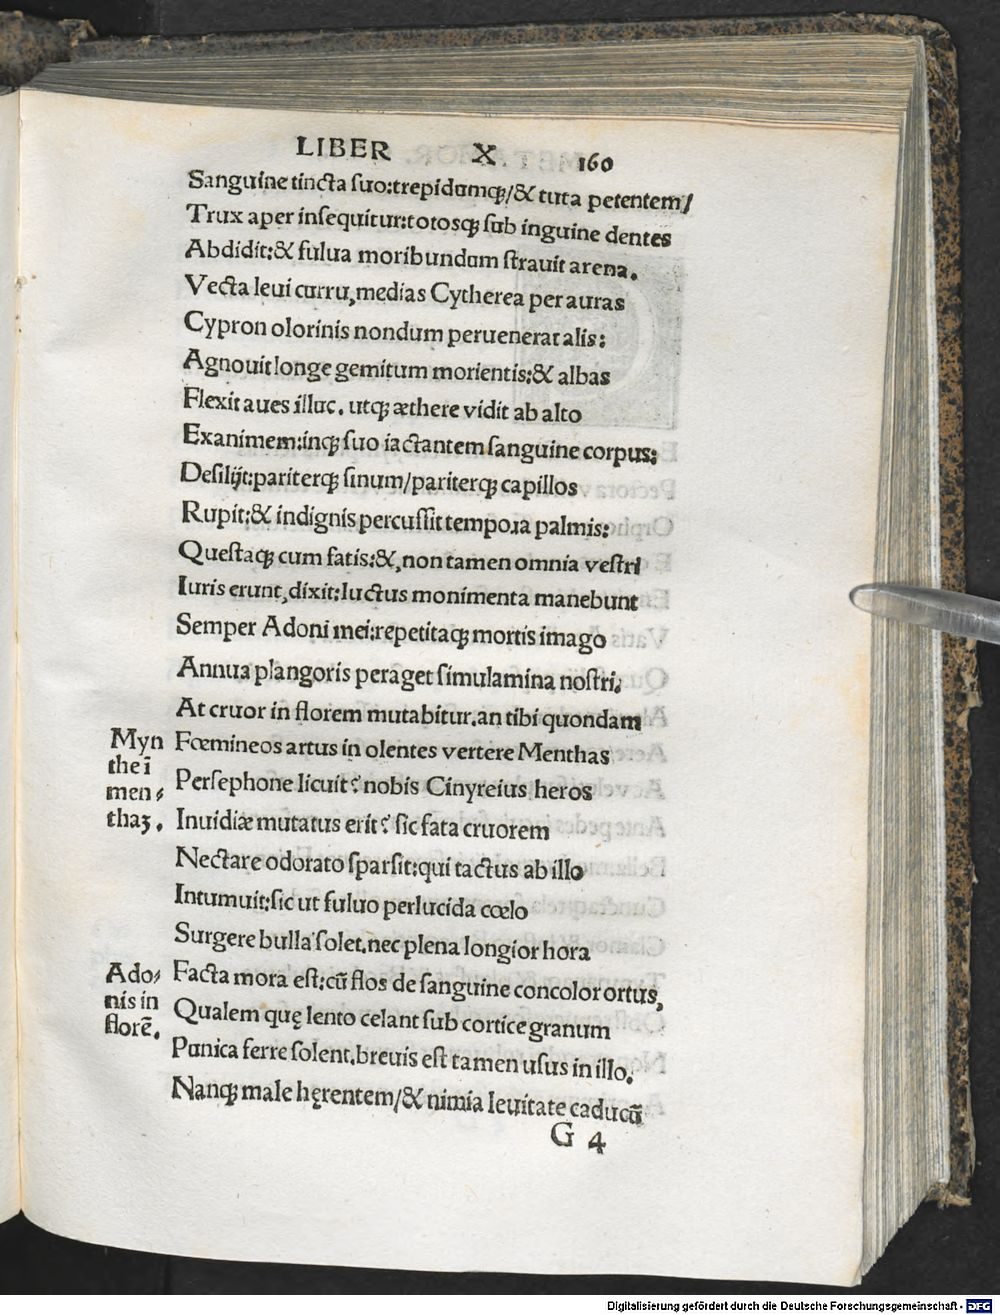 LIBER X. 160
Sanguine tincta suo:trepidumq;/& tuta petentem/
Trux aper insequitur:totosq; sub inguine dentes
Abdidit:& fulua moribundum strauit arena.
Vecta leui curru,medias Cytherea per auras
Cypron olorinis nondum peruenerat alis:
Agnouit longe gemitum morientis:& albas
Flexit aues illuc. utq; æthere vidit ab alto
Exanimem:inq; suo iactantem sanguine corpus:
Desilijt:pariterq; sinum/pariterq; capillos
Rupit:& indignis percussit tempora palmis:
Questaq; cum fatis:&,non tamen omnia vestri
Iuris erunt,dixit:luctus monimenta manebunt
Semper Adoni mei:repetitaq; mortis imago
Annua plangoris peraget simulamina nostri:
At cruor in florem mutabitur.an tibi quondam
Myn
the ĩ
men⸗
thaʒ.
Fœmineos artus in olentes vertere Menthas
Persephone licuit? nobis Cinyreius heros
Inuidiæ mutatus erit? sic fata cruorem
Nectare odorato sparsit:qui tactus ab illo
Intumuit:sic ut fuluo perlucida cœlo
Surgere bulla solet.nec plena longior hora
Ado⸗
nis in
florẽ.
Facta mora est:cũ flos de sanguine concolor ortus,
Qualem quę lento celant sub cortice granum
Punica ferre solent.breuis est tamen usus in illo.
Nanq; male hęrentem/& nimia leuitate caducũ
G 4
Digitalisierung gefördert durch die Deutsche Forschungsgemeinschaft - DFG